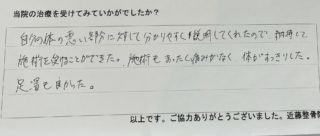 当院の治療を受けてみていかがでしたか?
自分の体の悪い部分に対して分かりやすく説明してくれたので、納得して
施術を受けることができた。施術もまったく痛みがなく、体がすっきりした。
足湯も良かった。
以上です。ご協力ありがとうございました。近藤整骨